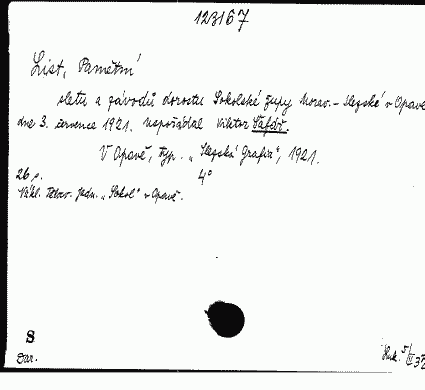 123167
List, Památní
sletu a závodů dorostu Sokolské župy Morav.-Slezské v Opavě
dne 3. července 1921. Uspořádal Viktor Šafář.
V Opavě, typ. „Slezská Grafia“, 1921.
26 s. 4°
Nákl. Tělocv. jedn. „Sokol“ v Opavě.
S
Dar.